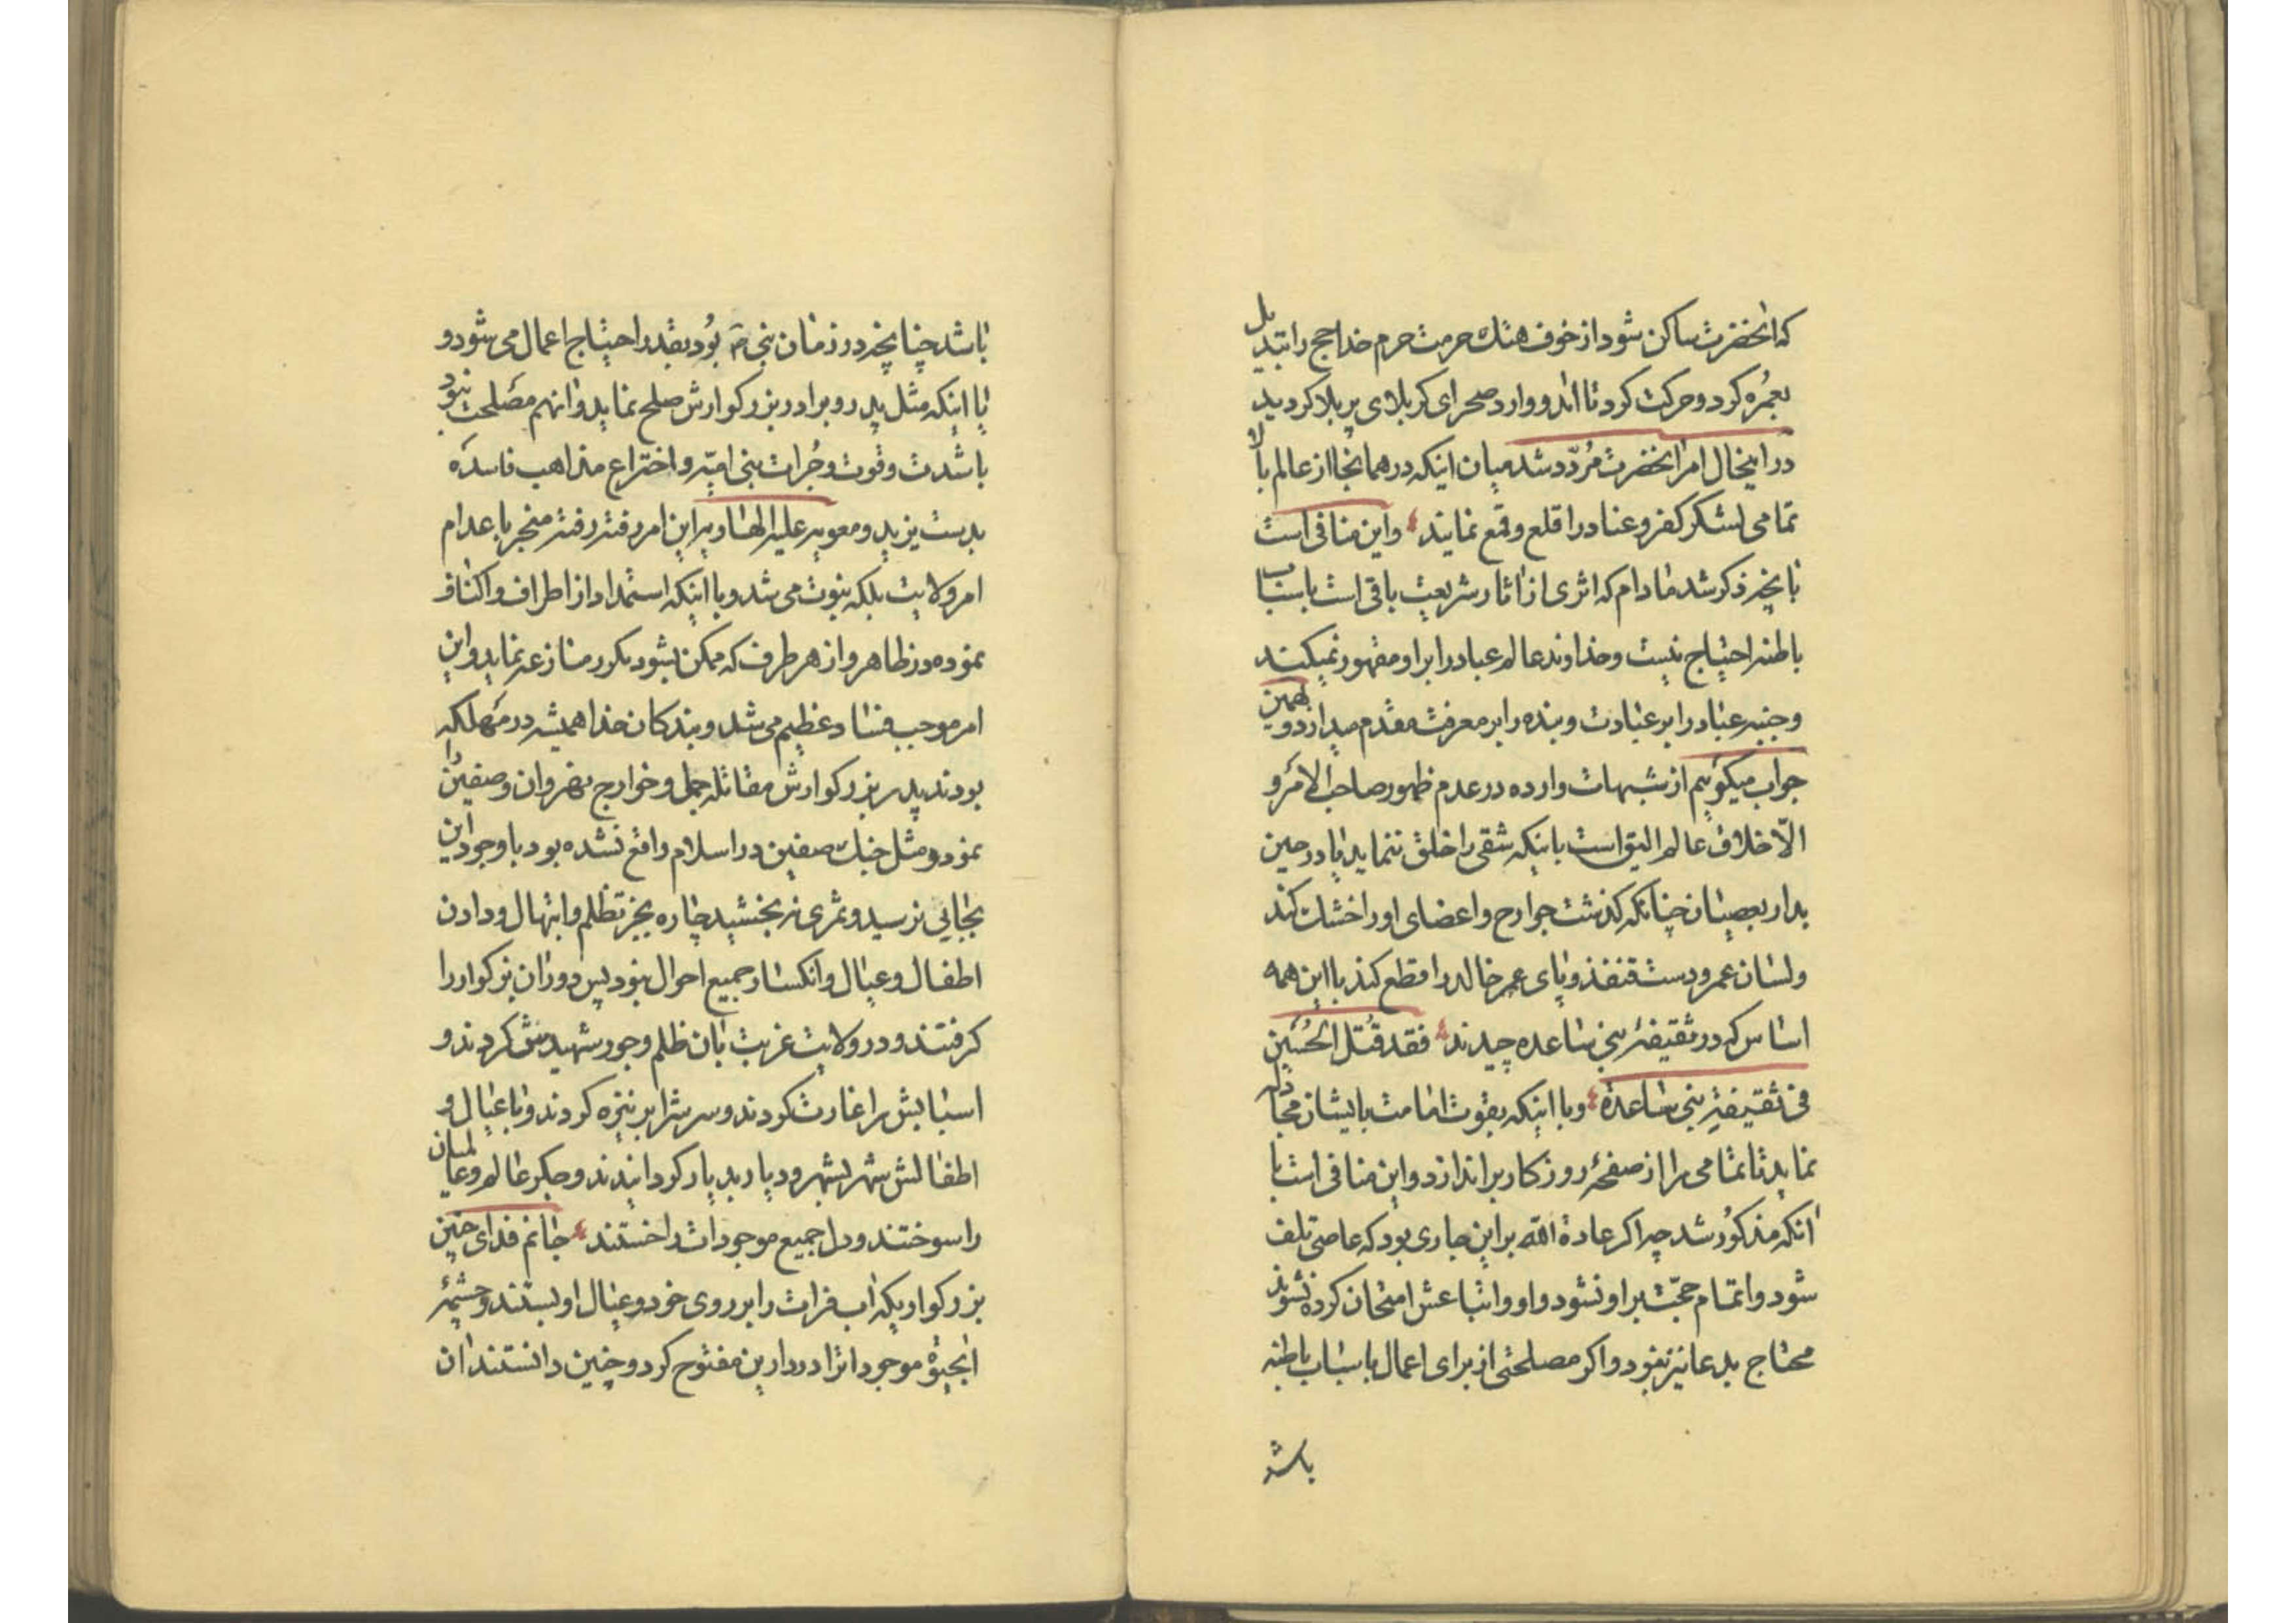 که انحضرت ساکن شود از خوف هتك حرمت حرم خدا حج را تبدیل
بعمره کرد و حرکت کرد تا اند و وارد صحرای کربلای پر بلا کردید
در اینحال امر انحضرت مردّد شد میان اینکه در همانجا از عالم بالا
تمامی لشکر کفر و عناد را قلع و قمع نمایند و این منافی است
بانچه ذکر شد مادام که اثری از اثار شریعت باقی است باسباب
باطنه احتیاج نیست و خداوند عالم عباد را بر او مقهور نمیکند
و جنبه عباد را بر عبادت و بنده را بر معرفت مقدم میدارد و بهمین
جواب میکوییم از شبهات وارده در عدم ظهور صاحب الامر و
الّا خلاق عالم الیق است باینکه شقی را خلق ننماید یا در حین
بدار بعصیان چنانکه کذشت جوارح و اعضای او را خشك کند
و لسان عمر و دست قنفذ و پای عمر خالد را قطع کند با این همه
اساس که در ثقیفهٔ بنی ساعده چیدند فقد قُتل الحُسَین
فی ثقیفةِ بنی ساعدة و با اینکه بقوت امامت با ایشان مجادله
نماید تا تمامی را از صفحهٔ روزکار براندازد و این منافی است با
انکه مذکور شد چه اکر عادة الله بر این جاری بود که عاصی تلف
شود و اتمام حجّت بر او نشود و او و اتباعش امتحان کرده نشوند
محتاج بدعا نیز نبود و اکر مصلحتی از برای اعمال باسباب باطنه
باشد
باشد چنانچه در زمان نبی ص بود بقدر احتیاج اعمال می شود و
یا اینکه مثل پدر و برادر بزرکوارش صلح نماید و انهم مصلحت نبود
با شدت و قوت و جُرات بنی امیّه و اختراع مذاهب فاسده
بدست یزید و معویه علیه الهاویه این امر رفته رفته منجر باعدام
امر ولایت بلکه نبوت می شد و با اینکه استمداد از اطراف و اکناف
نموده در ظاهر و از هر طرف که ممکن بشود مکرر منازعه نماید و این
امر موجب فساد عظیم می شد و بندکان خدا همیشه در مهلکه
بودند پدر بزرکوارش مقاتله جمل و خوارج نهروان و صفین را
نمود و مثل جنك صفین در اسلام واقع نشده بود با وجود این
بجایی نرسید و ثمری نه بخشید چاره بجز تظلم و ابتهال و دادن
اطفال و عیال و انکسار جمیع احوال نبود پس دور ان بزرکوار را
کرفتند و در ولایت غربت بان ظلم و جور شهیدش کردند و
اسبابش را غارت کردند و سرش را بر نیزه کردند و با عیال و
اطفالش شهر بشهر و دیار بدیار کردانیدند و جکر عالم و عالمیان
را سوختند و دل جمیع موجودات را خستند جانم فدای چنین
بزرکواریکه اب فرات را بر روی خود و عیال او بستند و چشمهٔ
الحیوة موجودات را در دارین مفتوح کرد و چنین دانستند ان